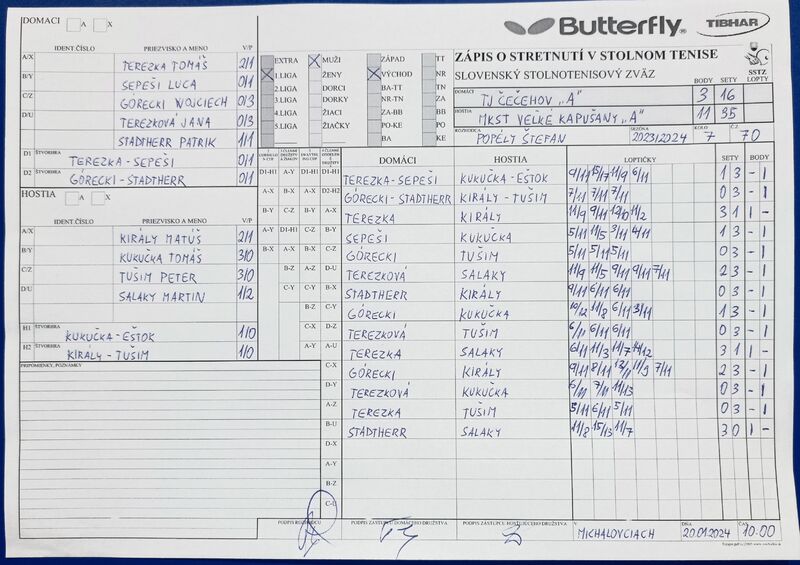 DOMÁCI A X
IDENT.ČÍSLO PRIEZVISKO A MENO V/P
A/X TEREZKA TOMÁŠ 2/1
B/Y SEPEŠI LUCA 0/1
C/Z GÓRECKI WOJCIECH 0/3
D/U TEREZKOVÁ JANA 0/3
STADTHERR PATRIK 1/1
D1 ŠTVORHRA TEREZKA-SEPEŠI 0/1
D2 ŠTVORHRA GÓRECKI-STADTHERR 0/1
HOSTIA A X
IDENT.ČÍSLO PRIEZVISKO A MENO V/P
A/X KIRÁLY MATÚŠ 2/1
B/Y KUKUČKA TOMÁŠ 3/0
C/Z TUŠIM PETER 3/0
D/U SALAKY MARTIN 1/2
H1 ŠTVORHRA KUKUČKA-EŠTOK 1/0
H2 ŠTVORHRA KIRÁLY-TUŠIM 1/0
PRIPOMIENKY, POZNÁMKY
Butterfly® TIBHAR
EXTRA MUŽI ZÁPAD TT
1.LIGA ŽENY VÝCHOD NR
2.LIGA DORCI BA-TT TN
3.LIGA DORKY NR-TN ZA
4.LIGA ŽIACI ZA-BB BB
5.LIGA ŽIAČKY PO-KE PO
BA KE
ZÁPIS O STRETNUTÍ V STOLNOM TENISE
SLOVENSKÝ STOLNOTENISOVÝ ZVÄZ
SSTZ
BODY SETY LOPTY
DOMÁCI TJ ČEČEHOV „A" 3 16
HOSTIA MKST VEĽKÉ KAPUŠANY „A" 11 35
ROZHODCA POPÉLY ŠTEFAN SEZÓNA 2023/2024 KOLO 7 Č.Z. 70
DOMÁCI HOSTIA LOPTIČKY SETY BODY
D1-H1 A-Y D1-H1 D1-H1 TEREZKA-SEPEŠI KUKUČKA-EŠTOK 9/11 15/17 11/9 6/11 1 3 - 1
A-X B-X A-X D2-H2 GÓRECKI-STADTHERR KIRÁLY-TUŠIM 7/11 7/11 7/11 0 3 - 1
B-Y C-Z B-Y A-X TEREZKA KIRÁLY 11/9 9/11 12/10 11/2 3 1 1 -
A-Y D1-H1 C-Z B-Y SEPEŠI KUKUČKA 5/11 11/5 3/11 4/11 1 3 - 1
B-X A-X B-X C-Z GÓRECKI TUŠIM 5/11 5/11 5/11 0 3 - 1
B-Z A-Z D-U TEREZKOVÁ SALAKY 11/9 11/5 9/11 9/11 7/11 2 3 - 1
C-Y C-Y B-X STADTHERR KIRÁLY 9/11 6/11 6/11 0 3 - 1
B-Z C-Y GÓRECKI KUKUČKA 10/12 11/8 6/11 3/11 1 3 - 1
C-X D-Z TEREZKOVÁ TUŠIM 6/11 6/11 6/11 0 3 - 1
A-Y A-U TEREZKA SALAKY 6/11 11/3 11/7 14/12 3 1 1 -
C-X GÓRECKI KIRÁLY 9/11 8/11 7/11 2 3 - 1
D-Y TEREZKOVÁ KUKUČKA 6/11 7/11 11/13 0 3 - 1
A-Z TEREZKA TUŠIM 5/11 6/11 5/11 0 3 - 1
B-U STADTHERR SALAKY 11/8 15/13 11/7 3 0 1 -
D-X
A-Y
B-Z
C-U
PODPIS ROZHODCU PODPIS ZÁSTUPCU DOMÁCEHO DRUŽSTVA PODPIS ZÁSTUPCU HOSŤUJÚCEHO DRUŽSTVA V MICHALOVCIACH DŇA 20.01.2024 ČAS 10.00